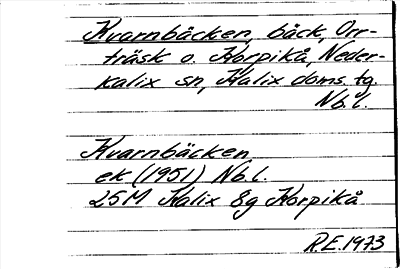 Kvarnbäcken, bäck, Orr-
träsk o. Korpikå, Neder-
kalix sn, Kalix doms. tg.
Nb.l.
Kvarnbäcken,
ek (1951) Nb.l.
25M Kalix 8g Korpikå
R.E. 1973